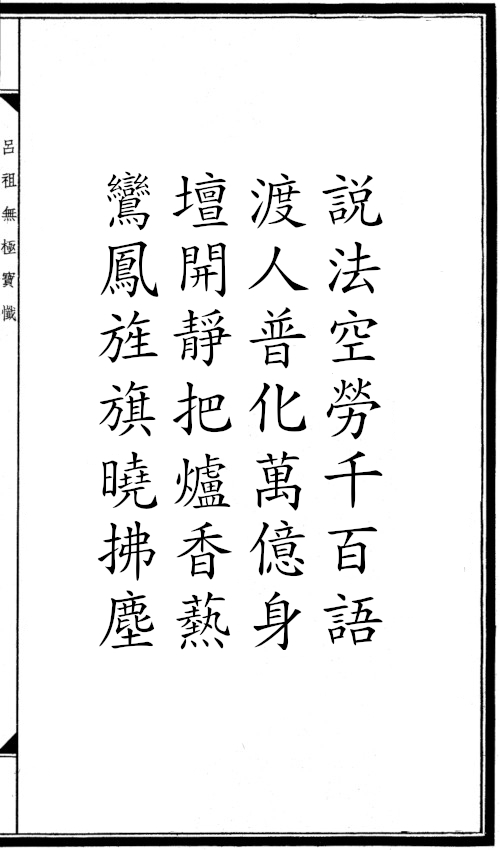 説法空勞千百語
渡人普化萬億身
壇開靜把爐香爇
鸞鳳旌旗曉拂塵
呂祖無極寶懺